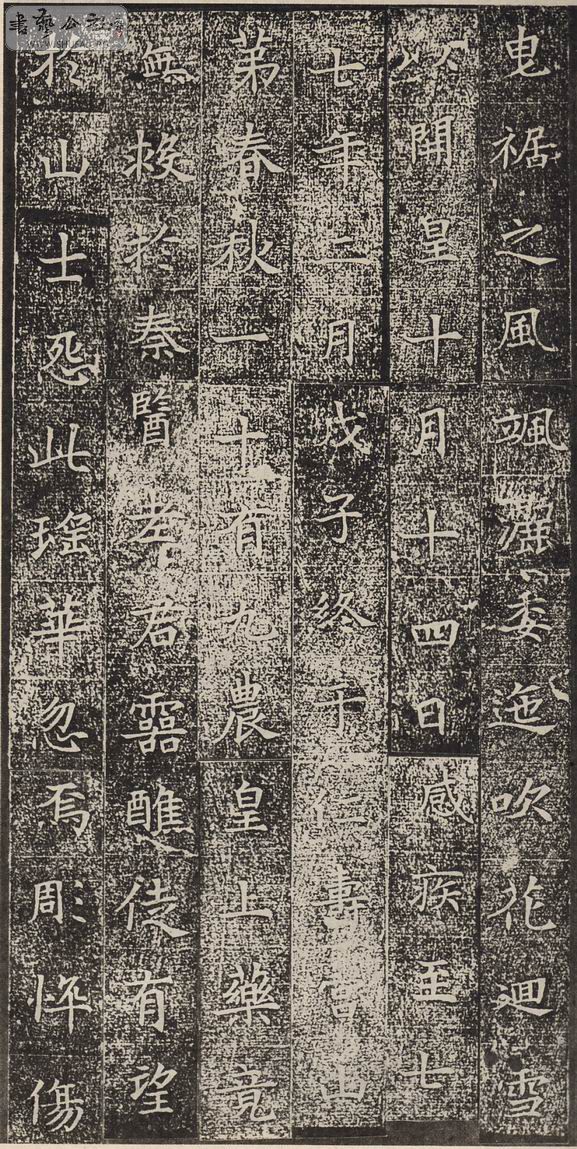 曳裾之風颯灑委迤吹花迴雪
以開皇十月十四日感疾至七
七年二月戊子終于仁壽宮山
第春秋一十有九農皇上藥竟
無救於秦醫老君靈醮徒有望
於山士怨此瑤華忽焉彫悴傷